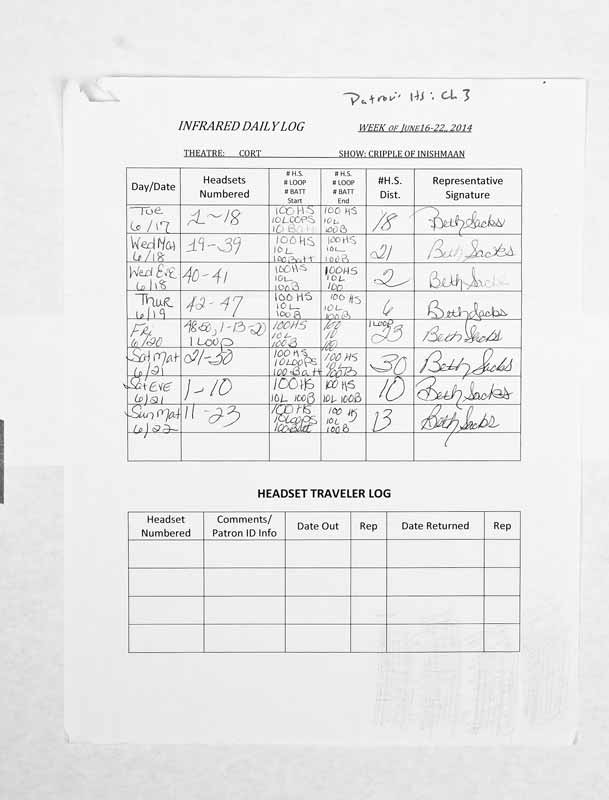 Patron Hs: Ch 3
INFRARED DAILY LOG WEEK OF JUNE16-22, 2014
THEATRE: CORT SHOW: CRIPPLE OF INISHMAAN
Day/Date Headsets Numbered # H.S. # LOOP # BATT Start # H.S. # LOOP # BATT End #H.S. Dist. Representative Signature
Tue 6/17 1-18 100HS 10LOOPS 10Batt 100 HS 10L 100B 18 Beth Sacks
Wed Mat 6/18 19-39 100HS 10L 100Batt 100HS 10L 100B 21 Beth Sacks
Wed EVE 6/18 40-41 100HS 10L 100B 100HS 10L 100 2 Beth Sacks
Thur 6/19 42-47 100 HS 10L 100B 100 HS 10L 100B 6 Beth Sacks
Fri 6/20 48-50, 1-13-20 1 LOOP 100HS 10L 100B 100 10 100 1 LOOP 23 Beth Sacks
Sat Mat 6/21 21-50 100HS 10LOOPS 100Batt 100HS 10L 100B 30 Beth Sacks
Sat EVE 6/21 1-10 100HS 10L 100B 100 HS 10L 100B 10 Beth Sacks
Sun Mat 6/22 11-23 100HS 10LOOPS 100Batt 100 HS 10L 100B 13 Beth Sacks
HEADSET TRAVELER LOG
Headset Numbered Comments/ Patron ID Info Date Out Rep Date Returned Rep